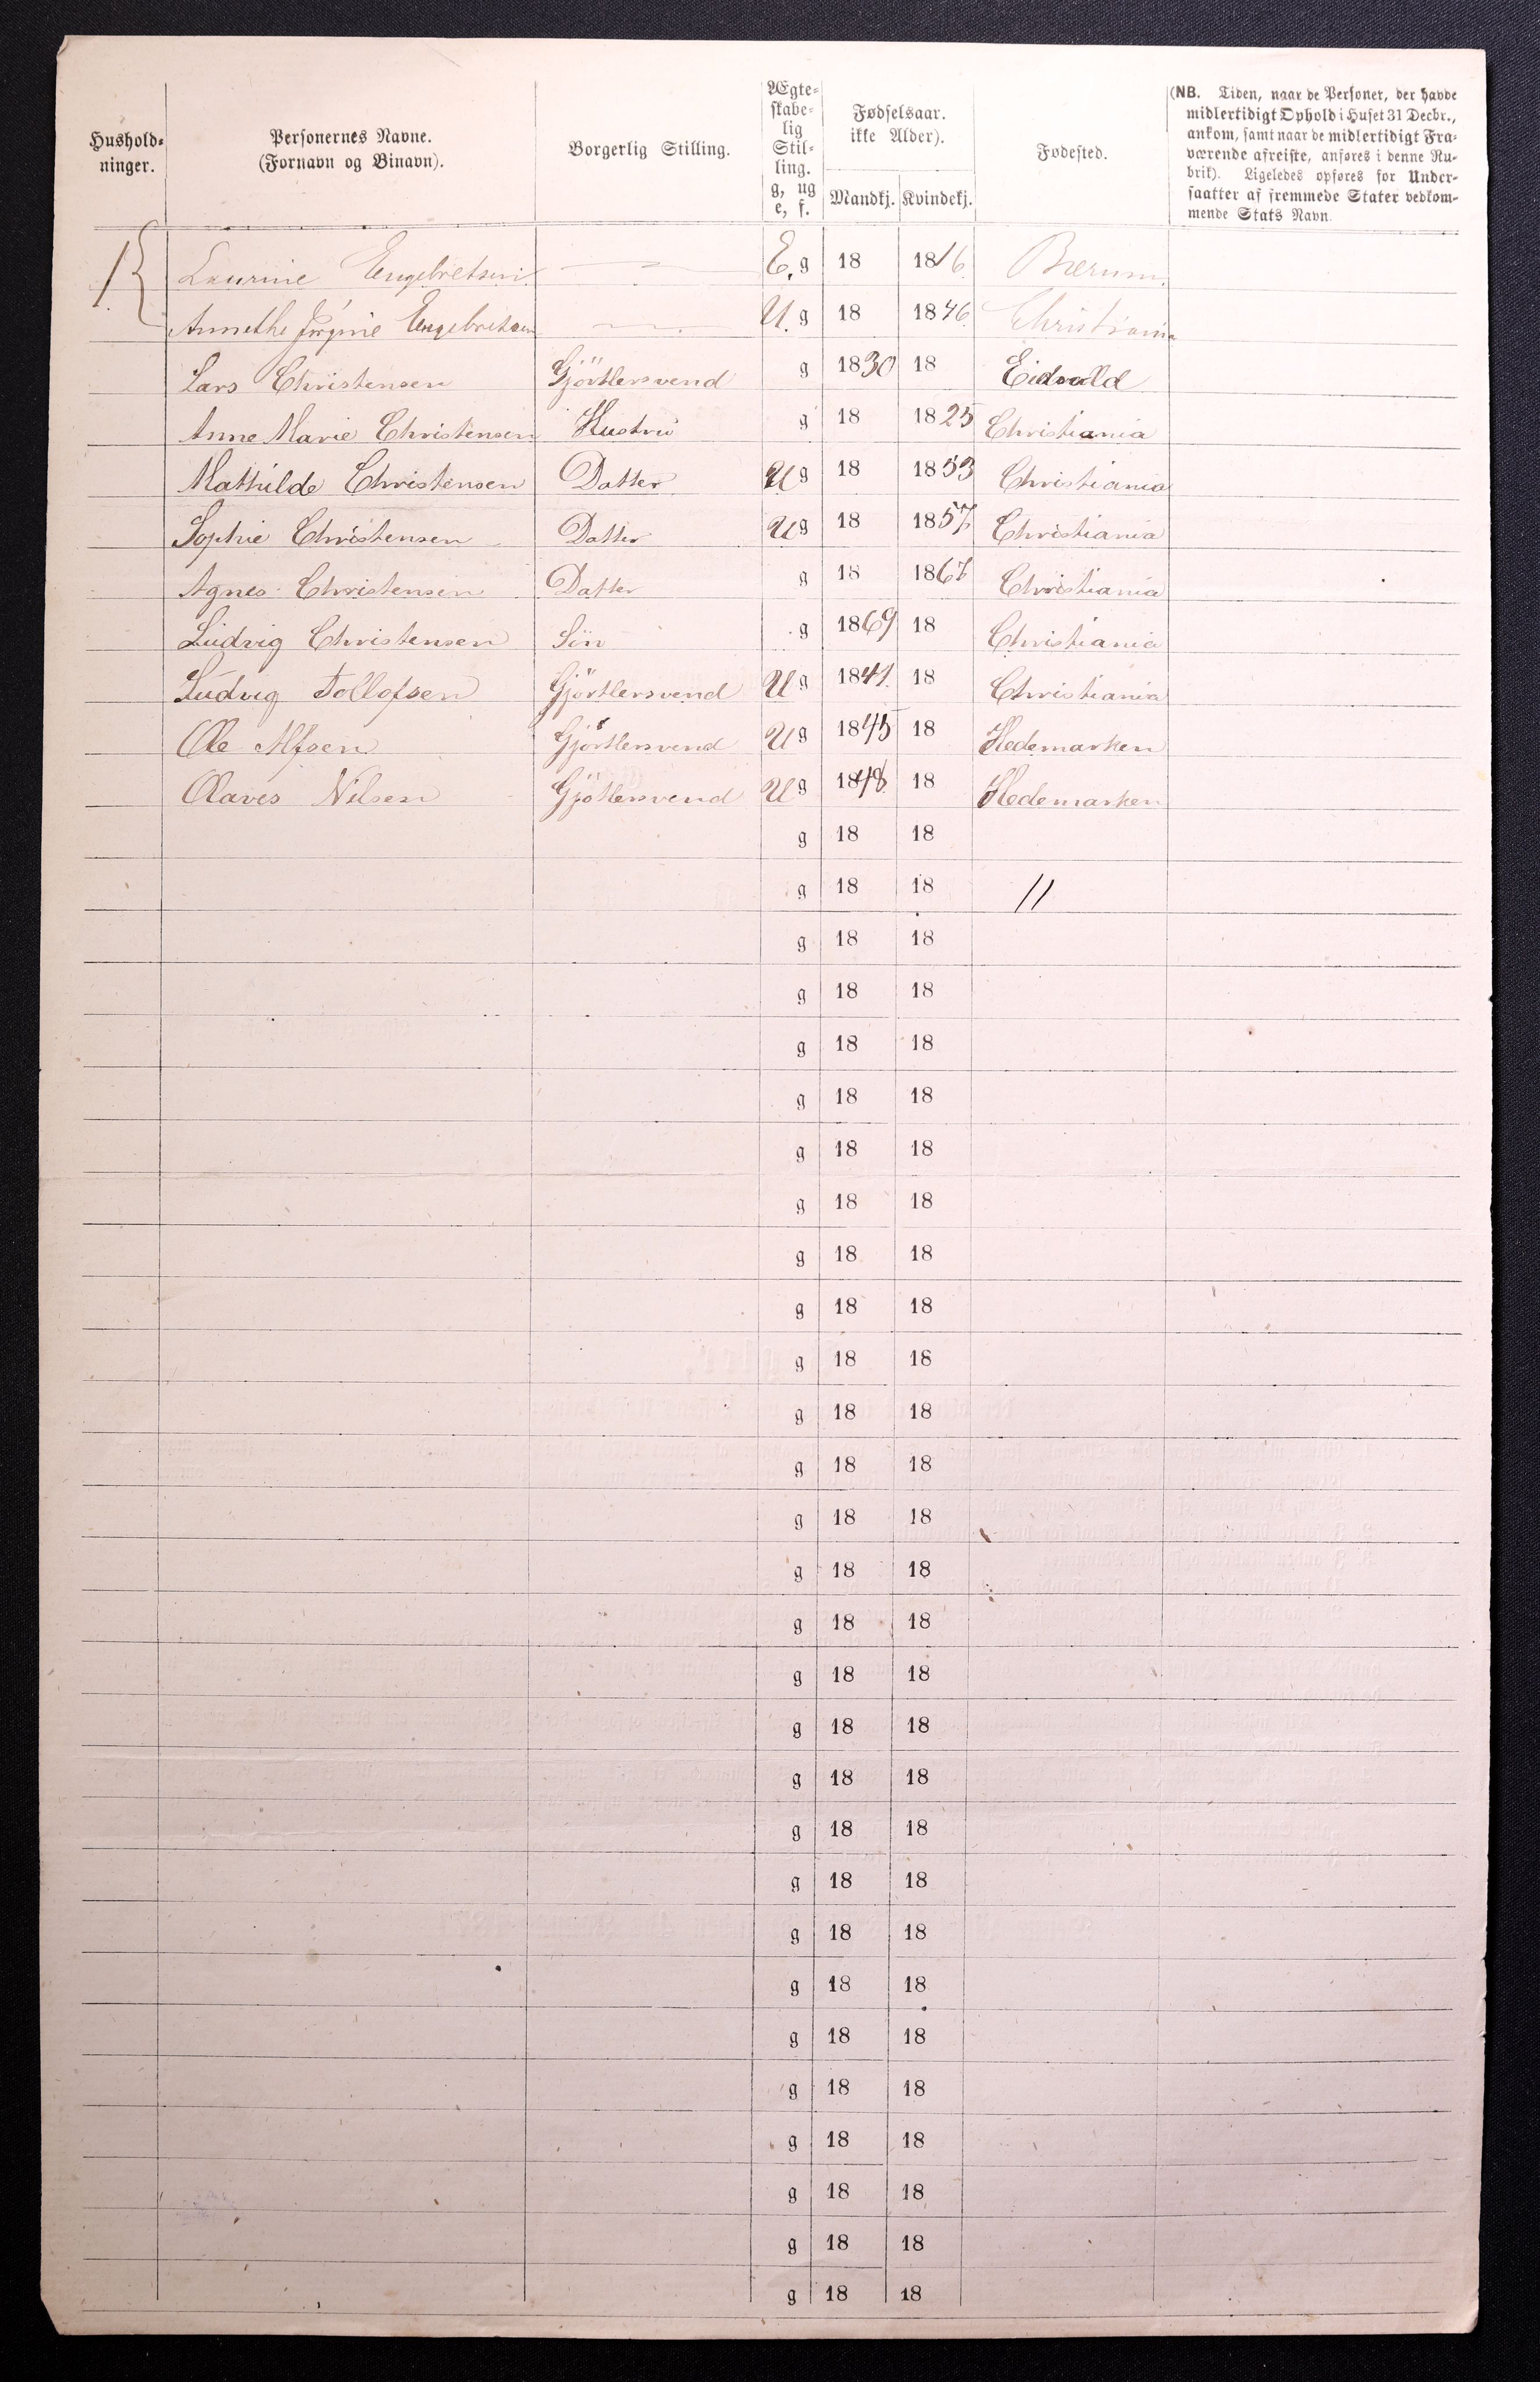 Hushold-
ninger.
Personernes Navne.
(Fornavn og Binavn).
Borgerlig Stilling.
Ægte-
skabe-
lig
Stil-
ling.
g, ug
e, f.
Fødselsaar.
ikke Alder).
Mandkj. Kvindekj.
Fødested.
(NB. Tiden, naar de Personer, der havde
midlertidigt Ophold i Huset 31 Decbr.,
ankom, samt naar de midlertidigt Fra-
værende afreiste, anføres i denne Ru-
brik). Ligeledes opføres for Under-
saatter af fremmede Stater vedkom-
mende Stats Navn.
1 { Laurine Engebretsen — E. g 18 1816 Bærum.
Annethe Jørgine Engebretsen — U. g 18 1846 Christiania
Lars Christensen Gjörtlersvend g 1830 18 Eidsvold
Anne Marie Christensen Hustru g 18 1825 Christiania
Mathilde Christensen Datter U g 18 1853 Christiania
Sophie Christensen Datter U g 18 1857 Christiania
Agnes Christensen Datter g 18 1867 Christiania
Ludvig Christensen Sön g 1869 18 Christiania
Ludvig Tollofsen Gjörtlersvend U g 1841. 18 Christiania
Ole Alfsen Gjörtlersvend U g 1845 18 Hedemarken
Olaves Nilsen Gjötlersvend U g 1848. 18 Hedemarken
g 18 18
g 18 18 11
g 18 18
g 18 18
g 18 18
g 18 18
g 18 18
g 18 18
g 18 18
g 18 18
g 18 18
g 18 18
g 18 18
g 18 18
g 18 18
g 18 18
g 18 18
g 18 18
g 18 18
g 18 18
g 18 18
g 18 18
g 18 18
g 18 18
g 18 18
g 18 18
g 18 18
g 18 18
g 18 18